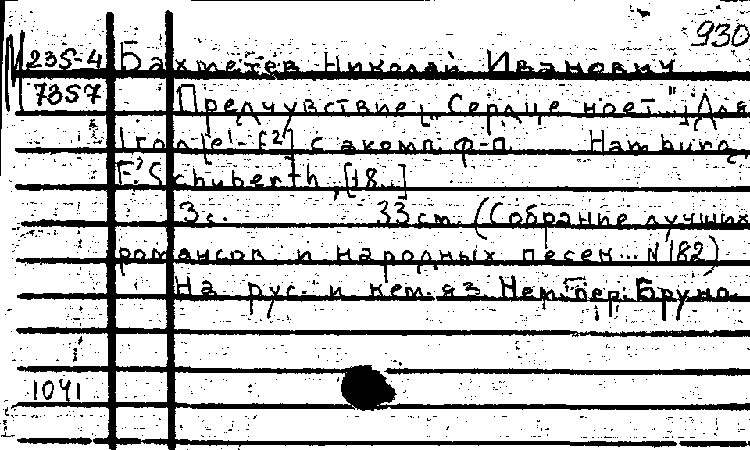 930
М 235-4 Бахметев Николай Иванович
7357 Предчувствие „Сердце ноет..." Для
1 гол. [e'-f²] с акомп. ф-п. Hamburg,
F. Schuberth, [18..]
3 с. 33 см. (Собрание лучших
романсов и народных песен... N 182)
На рус. и нем. яз. Нем. пер. Бруно
1041